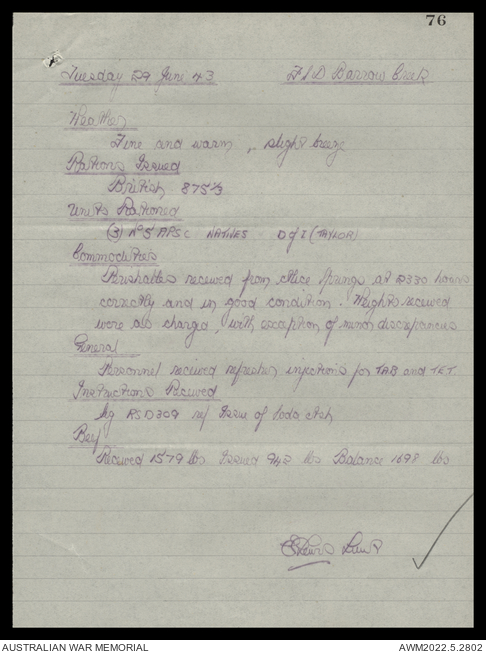 76
Tuesday 29 June 43 F.S.D Barrow Creek
Weather
Fine and warm, slight breeze
Rations Issued
British 875⅓
Units Rationed
(3) No 5 APSC NATIVES D of I (TAYLOR)
Commodities
Perishables received from Alice Springs at 2330 hours
correctly and in good condition. Weights received
were as charged, with exception of minor discrepancies
General
Personnel received refresher injections for TAB and TET.
Instructions Received
RSD309 re Issue of Soda Ash
Beef
Received 1579 lbs Issued 942 lbs Balance 1698 lbs
Lewis
AUSTRALIAN WAR MEMORIAL AWM2022.5.2802